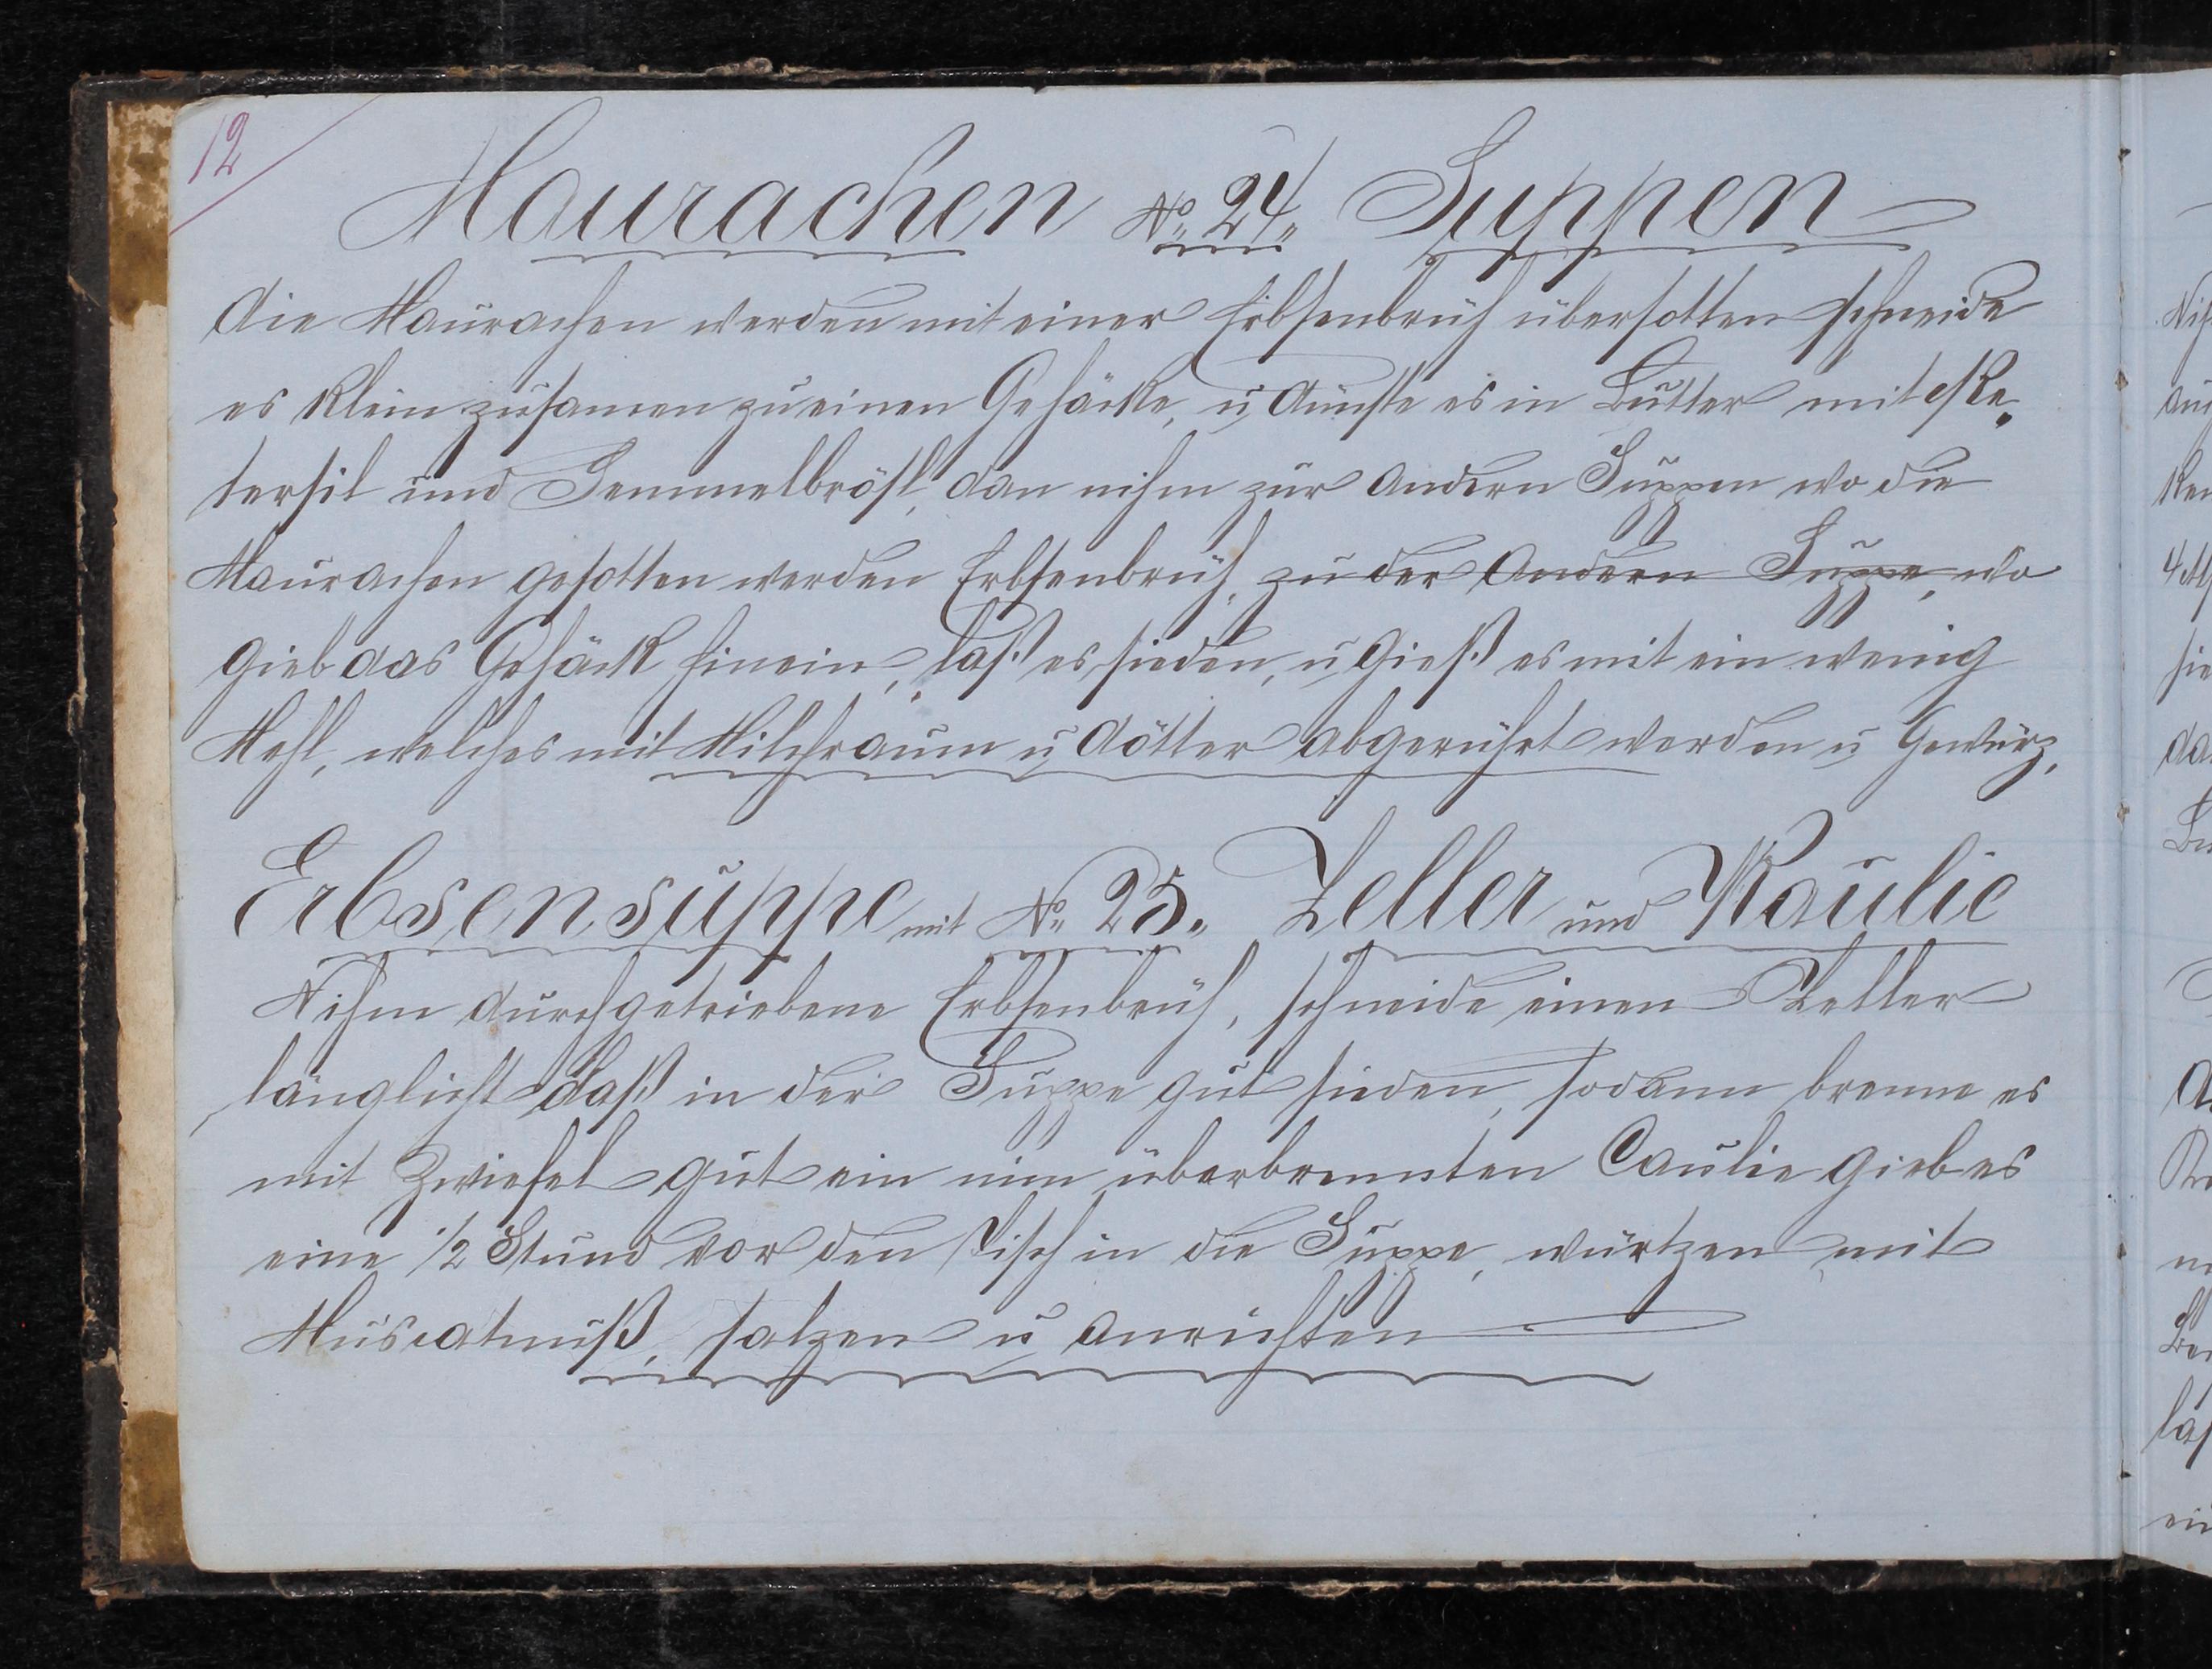 12
Maurachen No. 24. Suppen
Die Maurachen werden mit einer Erbsenbrüh übersotten schneide
es klein zusamen zu einen Gehäcke, u dünste es in Butter mit Pe„
tersil und Semmelbrösl, dan nihm zur andern Suppen wo die
Maurachen gesotten werden Erbsenbrüh, zu der andern Suppe, wo
gieb das Gehäck hinein, laß es sieden, u gieß es mit ein wenig
Mehl, welches mit Milchraum u Dötter abgerührt werden u Gewürz,
Erbsensuppe mit No. 25. Zeller und Kaulie
Nihm durchgetriebene Erbsenbrüh, schneide einen Zeller
länglicht laß in der Suppe gut sieden, sodann brenne es
mit Zwiefel gut ein nim überbrennten Caulie gieb es
eine 1/2 Stund vor den Tisch in die Suppe, würtzen mit
Muscatnuß, salzen u anrichten